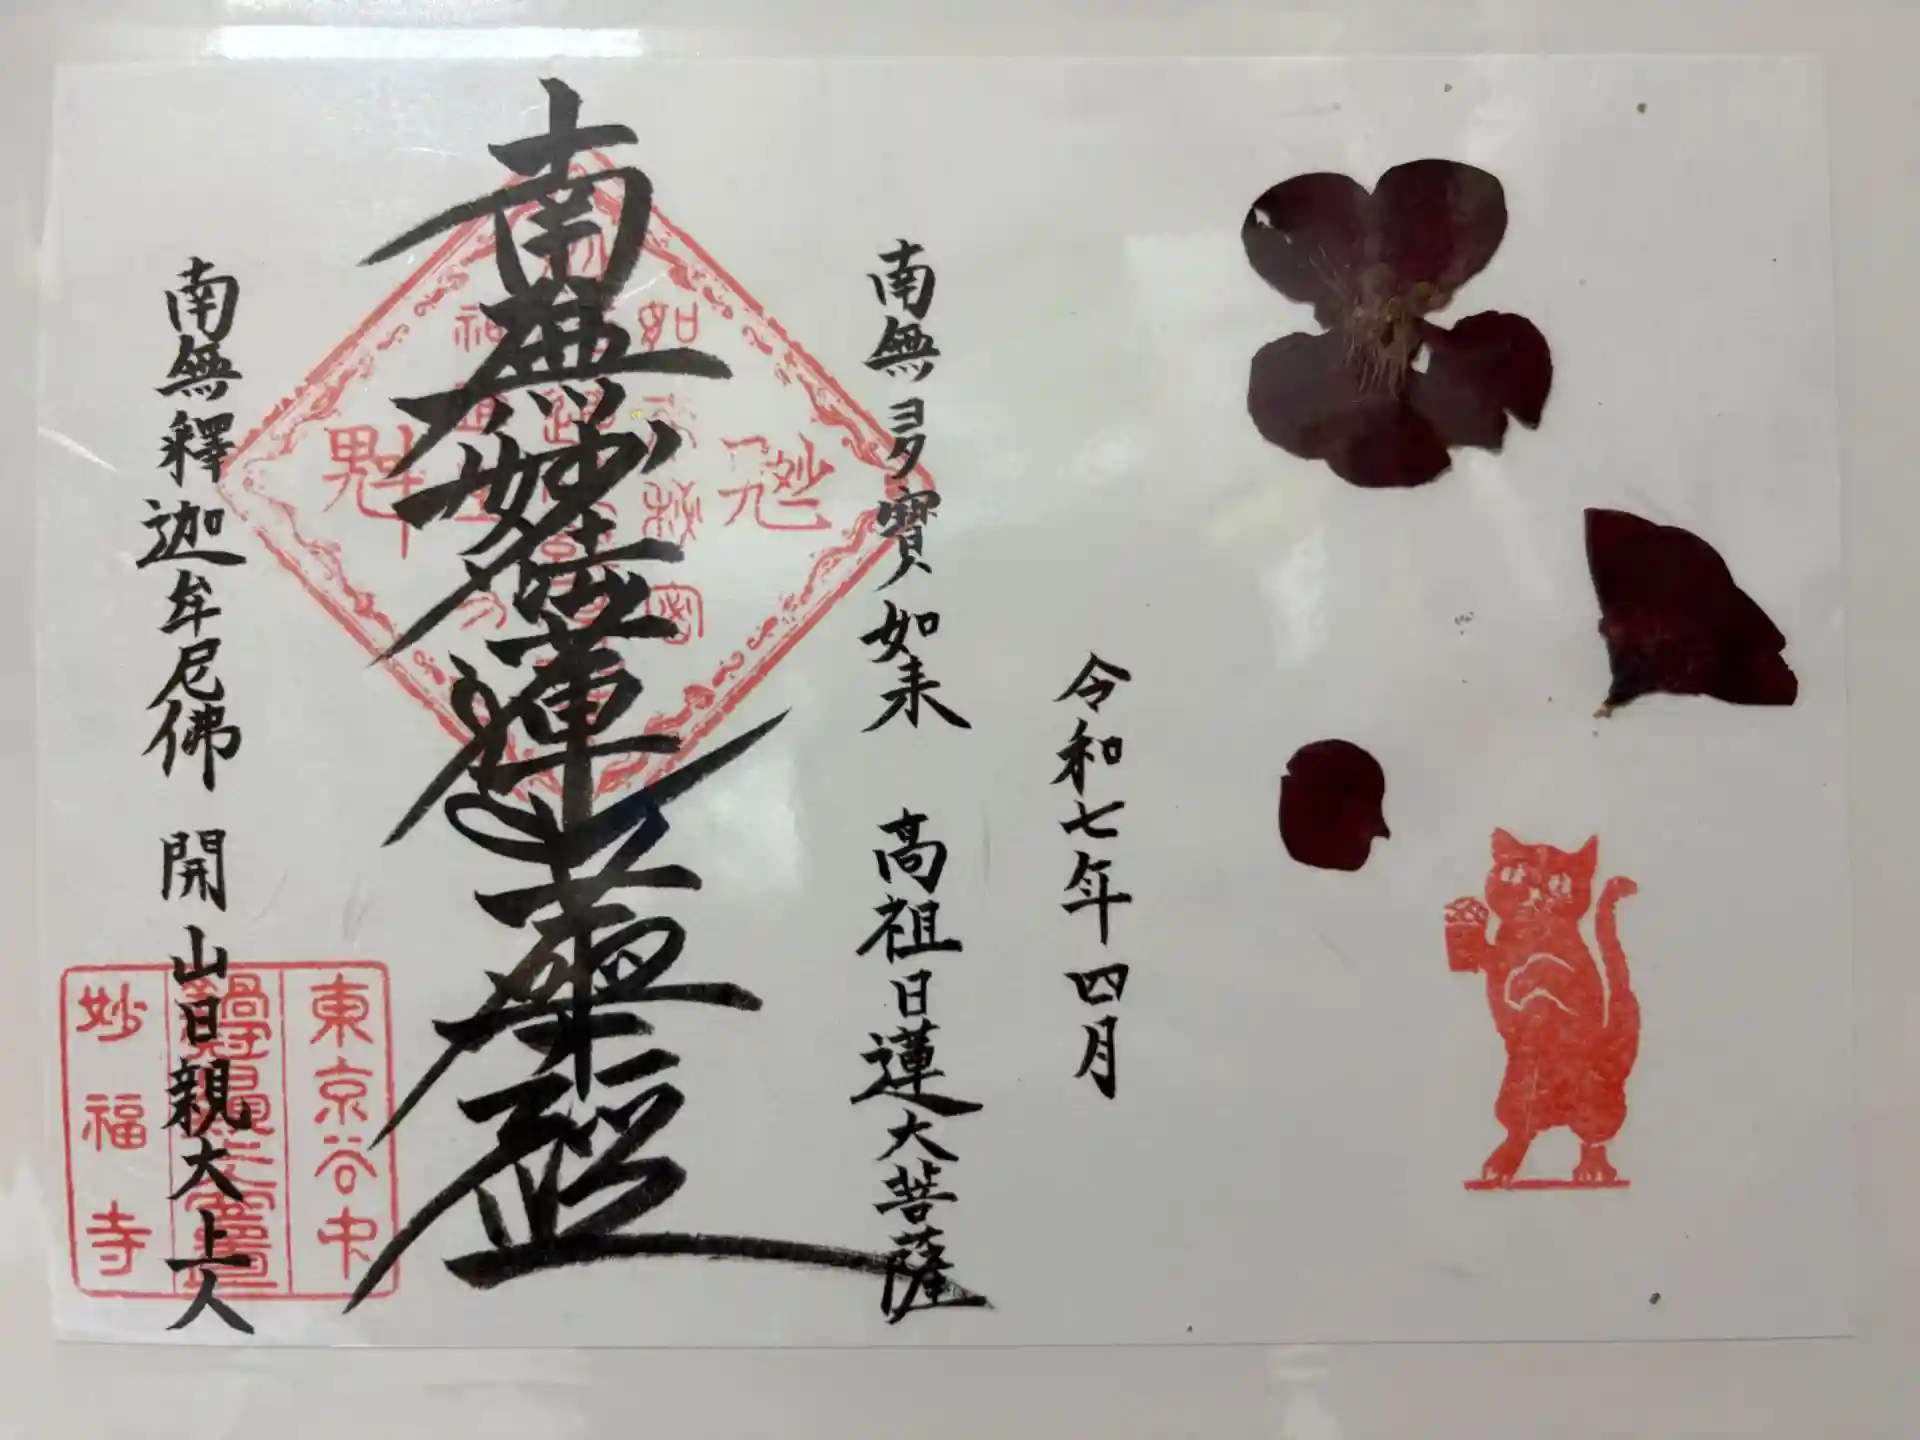 令和七年四月
南無多寶如来 高祖日蓮大菩薩
南無妙法蓮華経
南無釋迦牟尼佛 開山日親大上人
如
秘密
魁
東京谷中
妙福寺